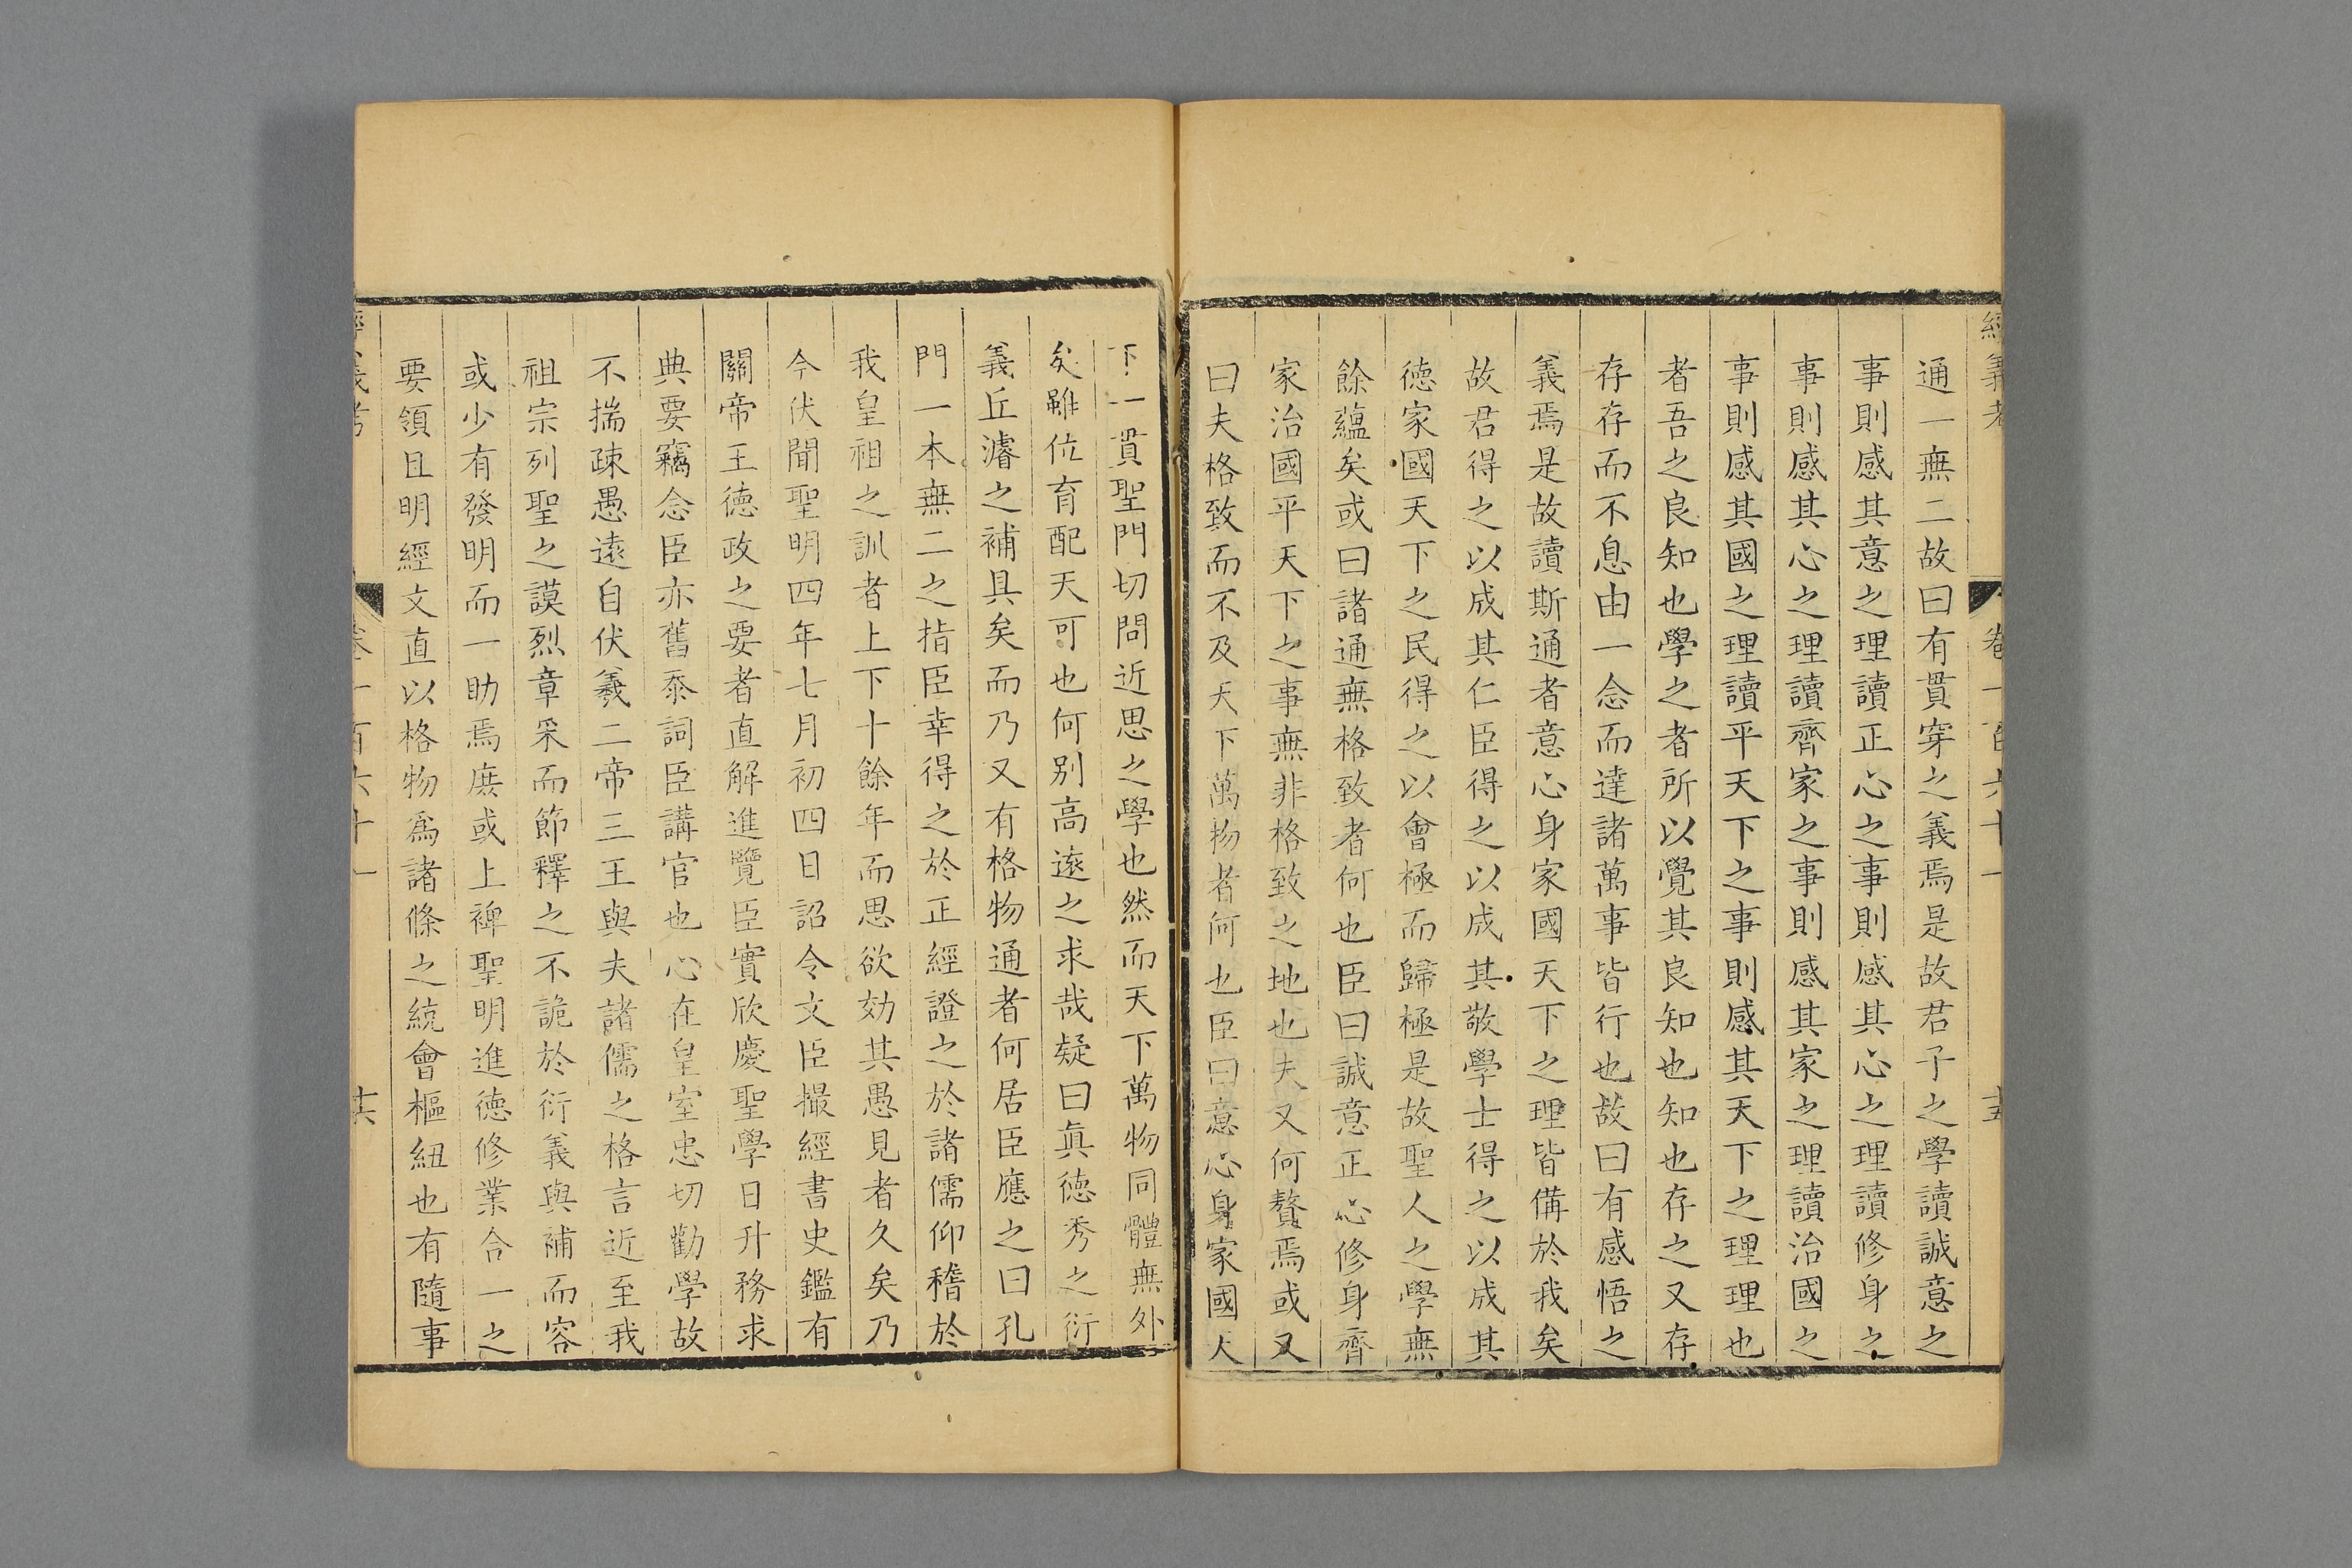 經義考 卷一百六十一 十五
通一無二故曰有貫穿之義焉是故君子之學讀誠意之
事則感其意之理讀正心之事則感其心之理讀修身之
事則感其心之理讀齊家之事則感其家之理讀治國之
事則感其國之理讀平天下之事則感其天下之理理也
者吾之良知也學之者所以覺其良知也知也存之又存
存存而不息由一念而達諸萬事皆行也故曰有感悟之
義焉是故讀斯通者意心身家國天下之理皆備於我矣
故君得之以成其仁臣得之以成其敬學士得之以成其
德家國天下之民得之以會極而歸極是故聖人之學無
餘蘊矣或曰諸通無格致者何也臣曰誠意正心修身齊
家治國平天下之事無非格致之地也夫又何贅焉或又
曰夫格致而不及天下萬物者何也臣曰意心身家國天
下一貫聖門切問近思之學也然而天下萬物同體無外
矣雖位育配天可也何別高遠之求哉疑曰真德秀之衍
義丘濬之補具矣而乃又有格物通者何居臣應之曰孔
門一本無二之指臣幸得之於正經證之於諸儒仰稽於
我皇祖之訓者上下十餘年而思欲効其愚見者久矣乃
今伏聞聖明四年七月初四日詔令文臣撮經書史鑑有
關帝王德政之要者直解進覽臣實欣慶聖學日升務求
典要竊念臣亦舊忝詞臣講官也心在皇室忠切勸學故
不揣疎愚遠自伏羲二帝三王與夫諸儒之格言近至我
祖宗列聖之謨烈章采而節釋之不詭於衍義與補而容
或少有發明而一助焉庶或上裨聖明進德修業合一之
要領且明經文直以格物爲諸條之統會樞紐也有隨事
經義考 卷一百六十一 十六